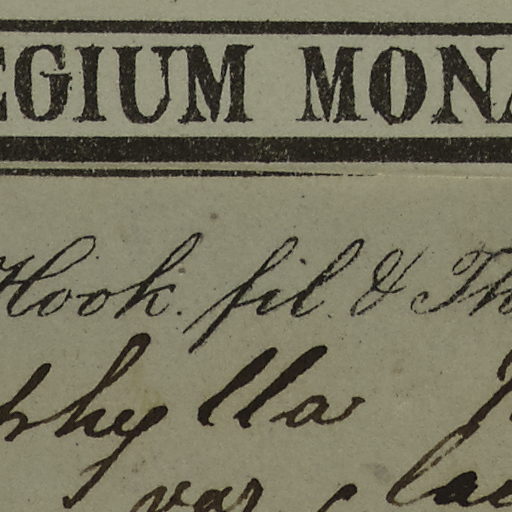 EGIUM MONA
Hook. fil. & Th
phylla
var. lac